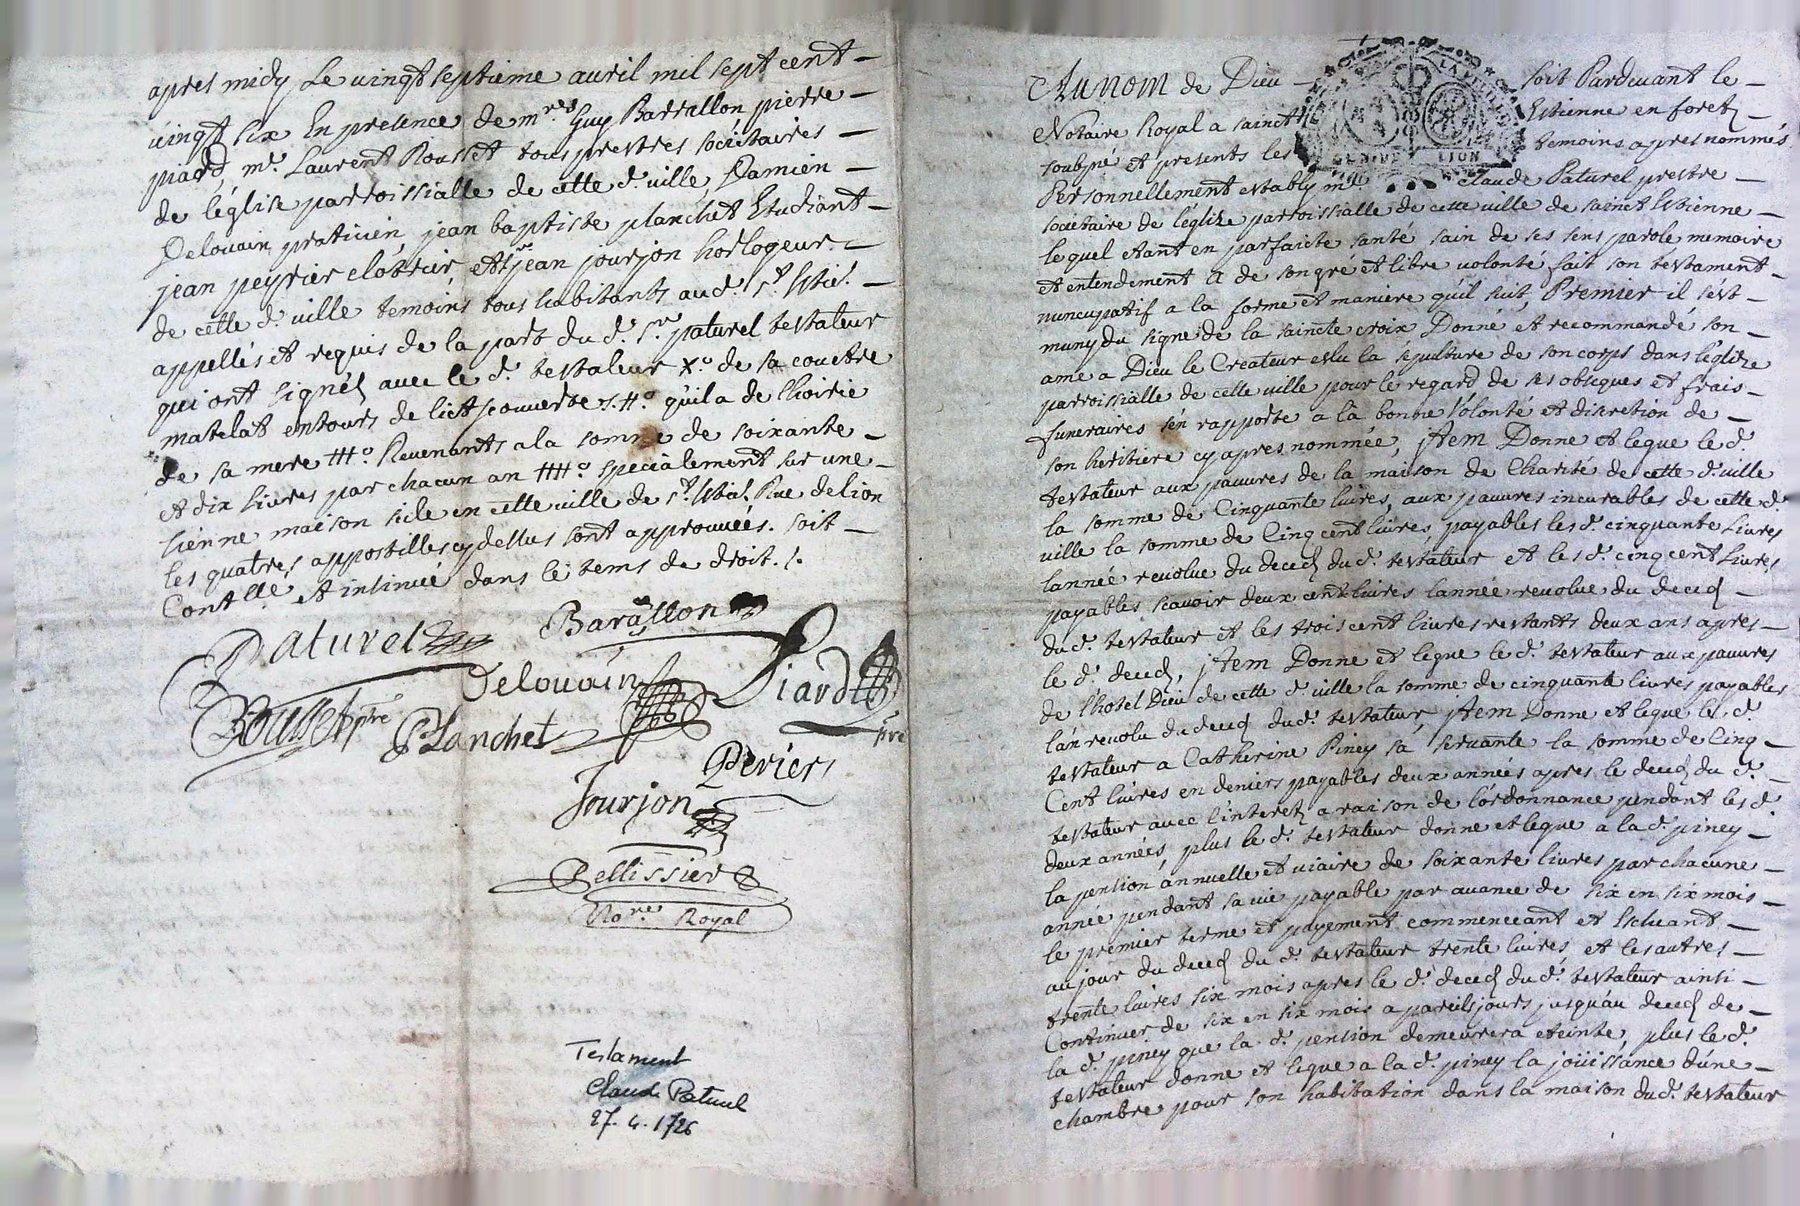 apres midy Le vingt septieme avril mil sept cent
vingt six En presence de mres Guy Barrallon pierre
piard, mr. Laurent Rousset tous prestres societaires
de leglise parroissialle de cette d. ville, Damien
Delouain praticien, jean baptiste planchet Etudiant
jean peyrier clottrier, et sr jean jourjon horlogeur
de cette d. ville temoins tous habitants aud. st Estie.
appellés et requis de la part du d. sr. paturel testateur
qui ont signéz avec le d. testateur Xo. de sa couettre
matelat entours de lict couverte, #o. qu'il a de lhoirie
de sa mere #o. Revenants a la somme de soixante
et dix livres par chacun an #o. specialement sur une
sienne maison size en cette ville de st. Estie. Rue de lion
les quatres appostilles cy dessus sont approuvées. soit
Contllé. et insinué dans le tems de droit. /.
Paturel
Barallon
Delouain
Piard
pre
Rousset pre
Planchet
Perier
Jourjon
Pellissier
Nore. Royal
Testament
Claude Paturel
27. 4. 1726
Au nom de Dieu soit Pardevant le
Notaire Royal a sainct Estienne en foretz
soubsné et presents les temoins apres nommés
Personnellement estably mre Claude Paturel prestre
societaire de léglize parroissialle de cette ville de sainct Estienne
lequel etant en parfaicte santé sain de ses sens parole memoire
et entendement a de son gré et libre volonté fait son testament
nuncupatif a la forme et maniere quil suit, Premier il s'est
muny du signe de la saincte croix Donné et recommandé son
ame a Dieu le Createur eslu la sepulture de son corps dans léglize
parroissialle de cette ville pour le regard de ses obseques et frais
funeraires s'en rapporte a la bonne volonté et discretion de
son heritiere cy apres nommée, jtem Donne et legue le d.
testateur aux pauvres de la maison de Charité de cette d. ville
la somme de Cinquante livres, aux pauvres incurables de cette d.
ville la somme de Cinq cent livres, payables les d. cinquante Livres
lannée revolue du decedz du d. testateur et les d. cinq cent Livres
payables scavoir deux cent livres lannée revolue du decedz
du d. testateur et les trois cent livres restants deux ans apres
le d. decedz, jtem Donne et legue le d. testateur aux pauvres
de l'hotel Dieu de cette d. ville la somme de cinquante livres payables
l'an revolu du decedz du d. testateur, jtem Donne et legue le d.
testateur a Catherine Piney sa servante la somme de Cinq
Cent livres en deniers payables deux années apres le decedz du d.
testateur avec l'interetz a raison de l'ordonnance pendant les d.
deux années, plus le d. testateur donne et legue a la d. piney
la pension annuelle et viaire de soixante livres par chacune
année pendant sa vie payable par avance de six en six mois
le premier terme et payement commenceant et Escheant
au jour du decedz du d. testateur trente livres, et les autres
trente livres six mois apres le d. decedz du d. testateur ainsi
Continuer de six en six mois a pareils jours jusqu'au decedz de
la d. piney que la d. pension demeurera eteinte, plus le d.
testateur donne et legue a la d. piney la jouissance d'une
chambre pour son habitation dans la maison du d. testateur
LION